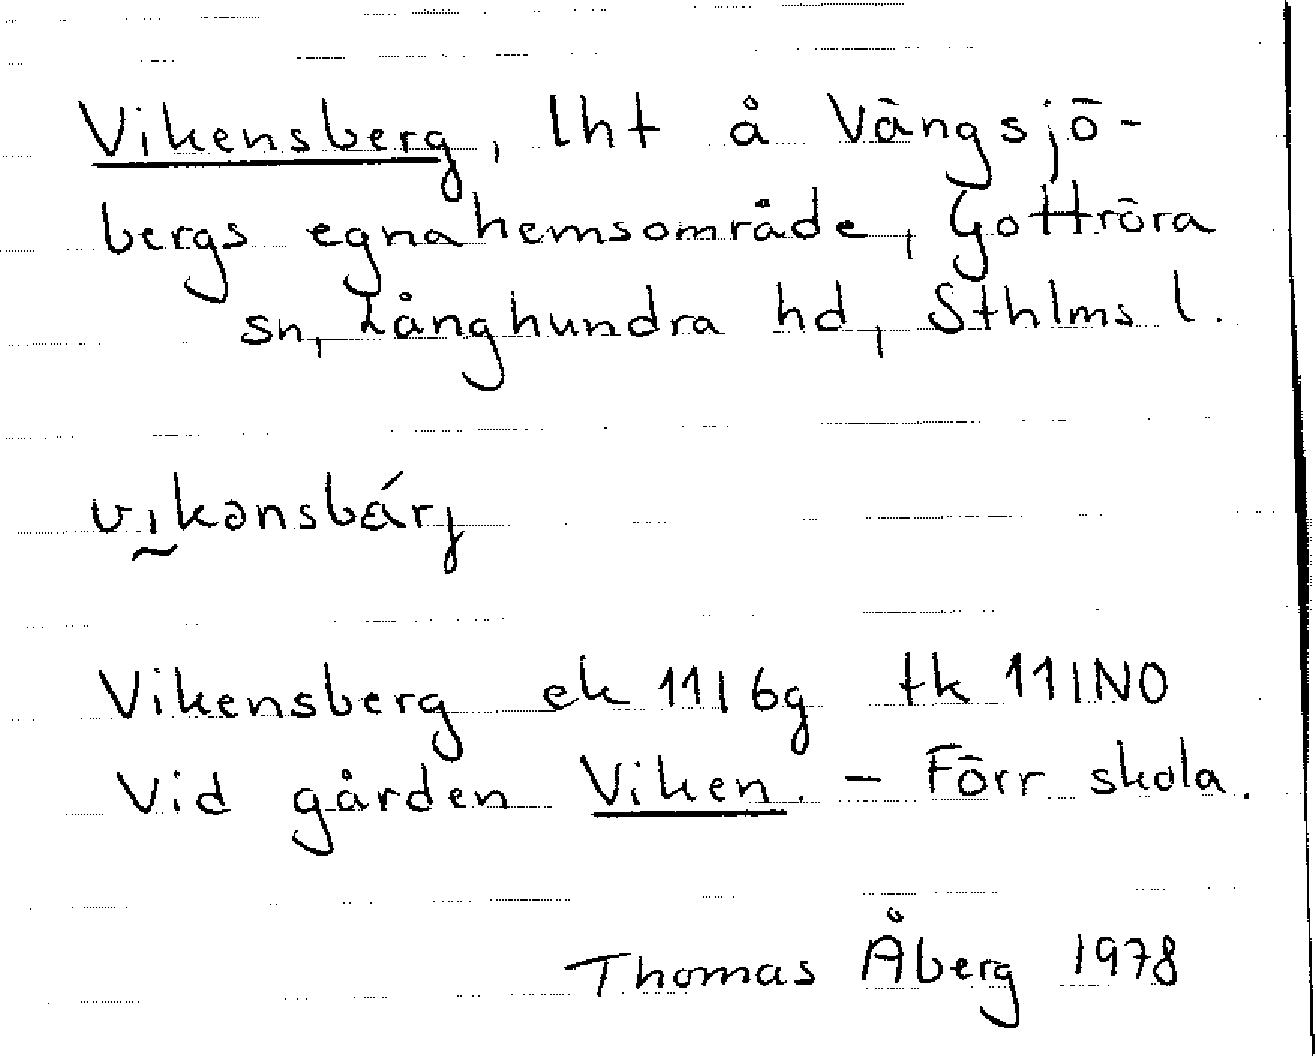 Vikensberg, lht å Vängsjö-
bergs egnahemsområde, Gottröra
sn, Långhundra hd, Sthlms l.
vı̰kənsbɛ́rj
Vikensberg ek 11I6g tk 11INO
Vid gården Viken. - Förr skola.
Thomas Åberg 1978